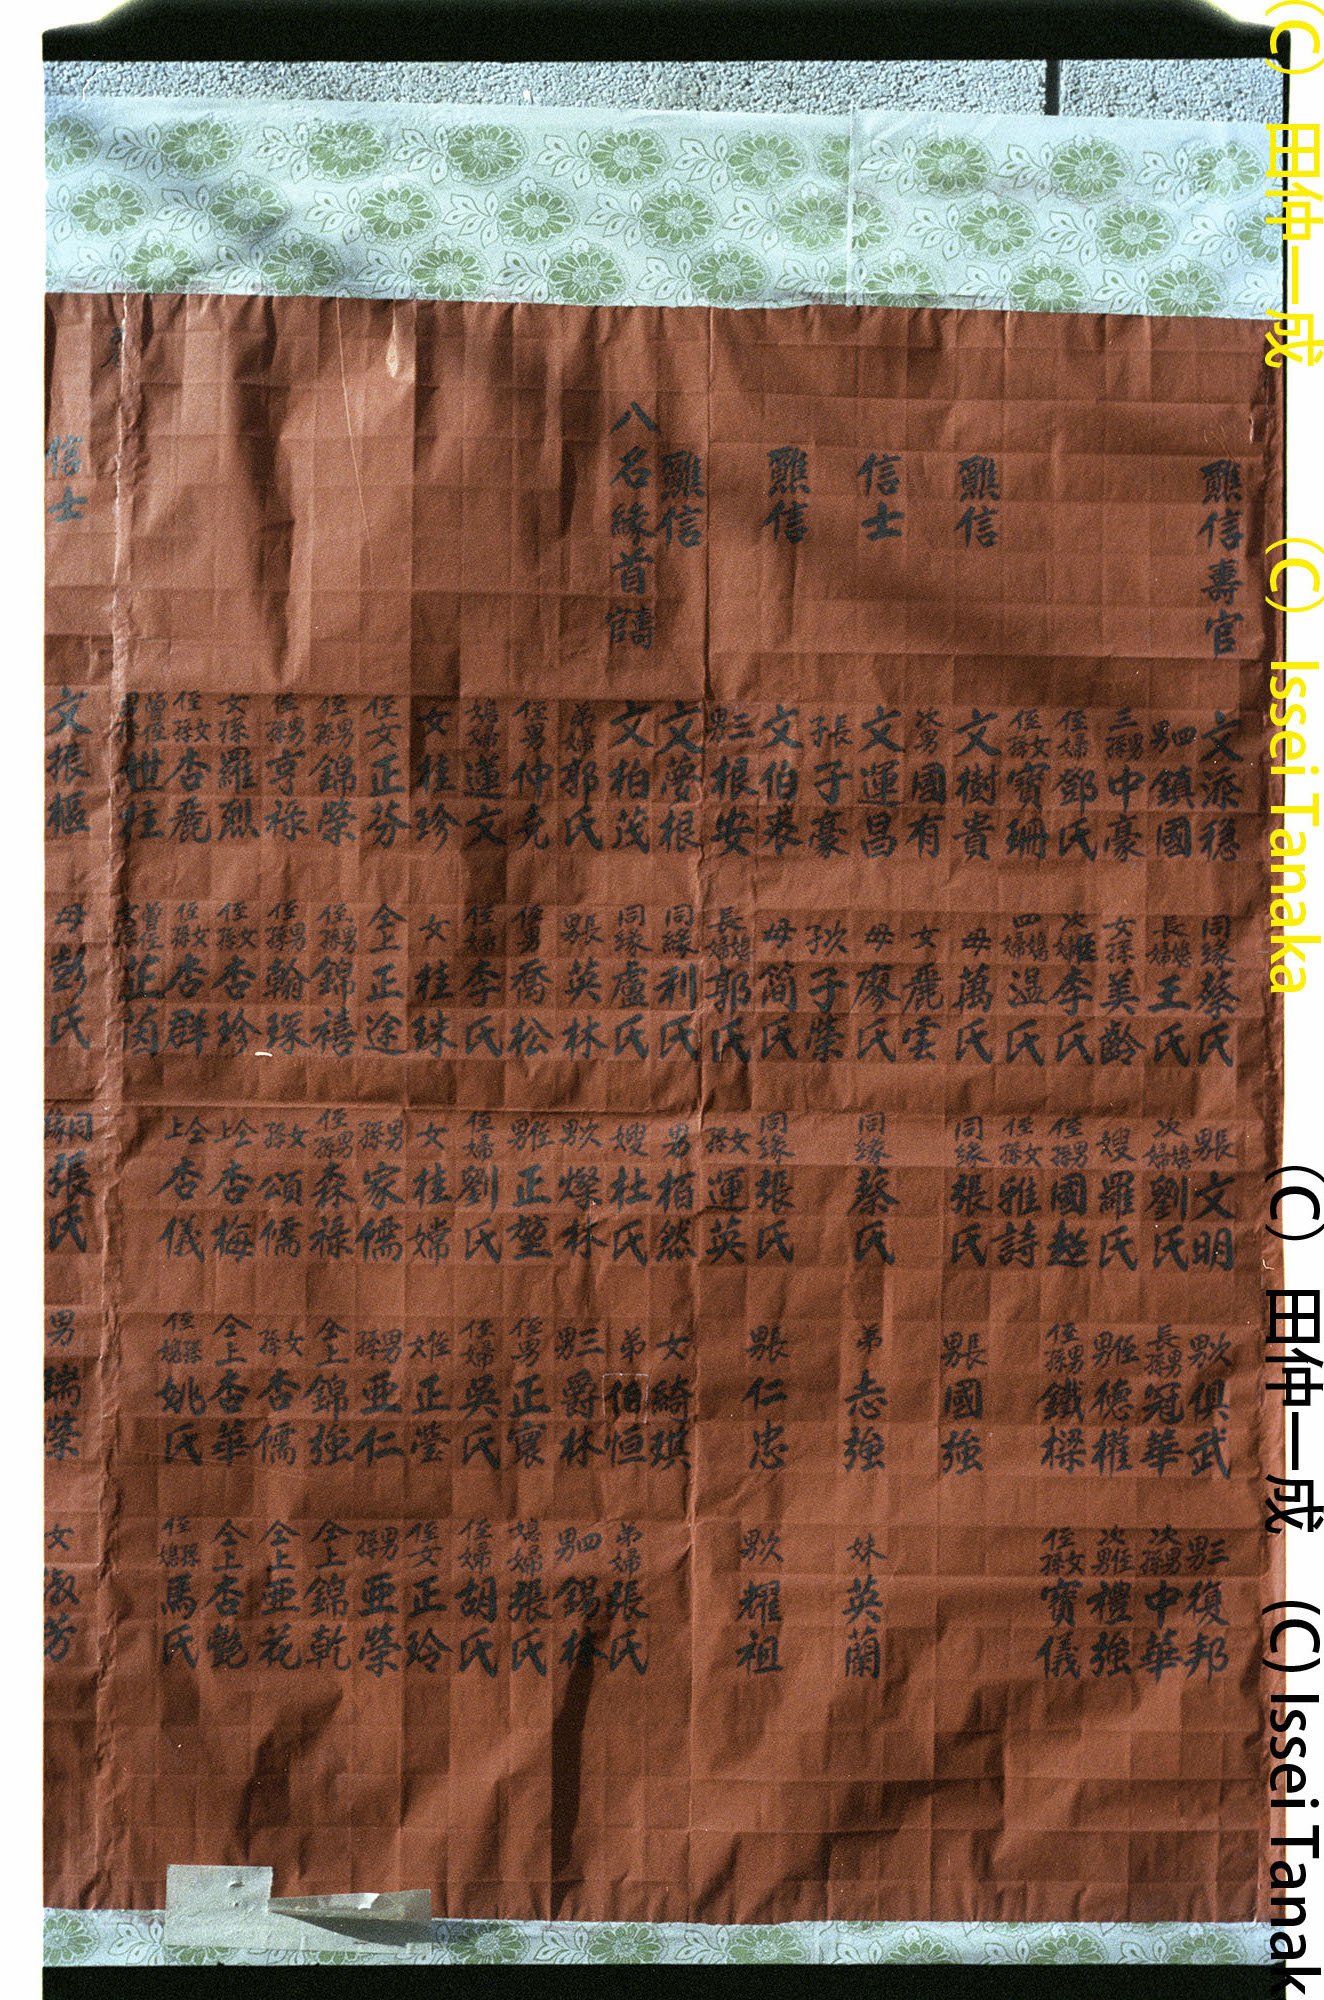 醮信壽官 文添穩 同緣蔡氏 長男文明 次男俱武 三男復邦
四男鎮國 長媳婦王氏 次媳婦劉氏 長男孫冠華 次男孫中華
三男孫中豪 女孫美齡 嫂羅氏 侄男德權 次侄男禮強
侄婦鄧氏 次侄婦李氏 侄男孫國趂 侄男孫鐵樑 侄女孫寶儀
侄女孫寶珊 四媳婦温氏 侄女孫雅詩
醮信 文樹貴 母萬氏 同緣張氏 長男國強
次男國有 女麗雲
信士 文運昌 母廖氏 同緣蔡氏 弟志強 妹英蘭
長子子豪 次子子榮
醮信 文伯裘 母简氏 同緣張氏 長男仁忠 次男耀祖
三男根安 長媳婦郭氏 女孫運英
醮信 文夢根 同緣利氏 男栢然 女綺琪
八名緣首壽官 文柏茂 同緣盧氏 嫂杜氏 弟伯恒 弟婦張氏
弟婦郭氏 長男英林 次男燦林 三男爵林 四男錫林
侄男仲尧 侄男喬松 侄男正堃 侄男正寰 媳婦張氏
媳婦蓮文 侄婦李氏 侄婦劉氏 侄婦吳氏 侄婦胡氏
女桂珍 女桂珠 女桂嫦 侄女正瑩 侄女正玲
侄女正芬 仝上正途 男孫家儒 男孫亜仁 男孫亜榮
侄男孫錦榮 侄男孫錦禧 侄男孫森祿 仝上錦強 仝上錦乾
侄男孫亨祿 侄男孫翰琛 女孫頌儒 女孫杏儒 仝上亜花
女孫羅烈 侄女孫杏珍 仝上杏梅 仝上杏華 仝上杏艷
侄女孫杏麗 侄女孫杏群 仝上杏儀 侄孫媳姚氏 侄孫媳馬氏
世 曾侄女孫芷茵
信士 文振樞 母彭氏 同緣張氏 男瑞榮 女淑芳
(C) 田仲一成 (C) Issei Tanaka
(C) 田仲一成 (C) Issei Tanak